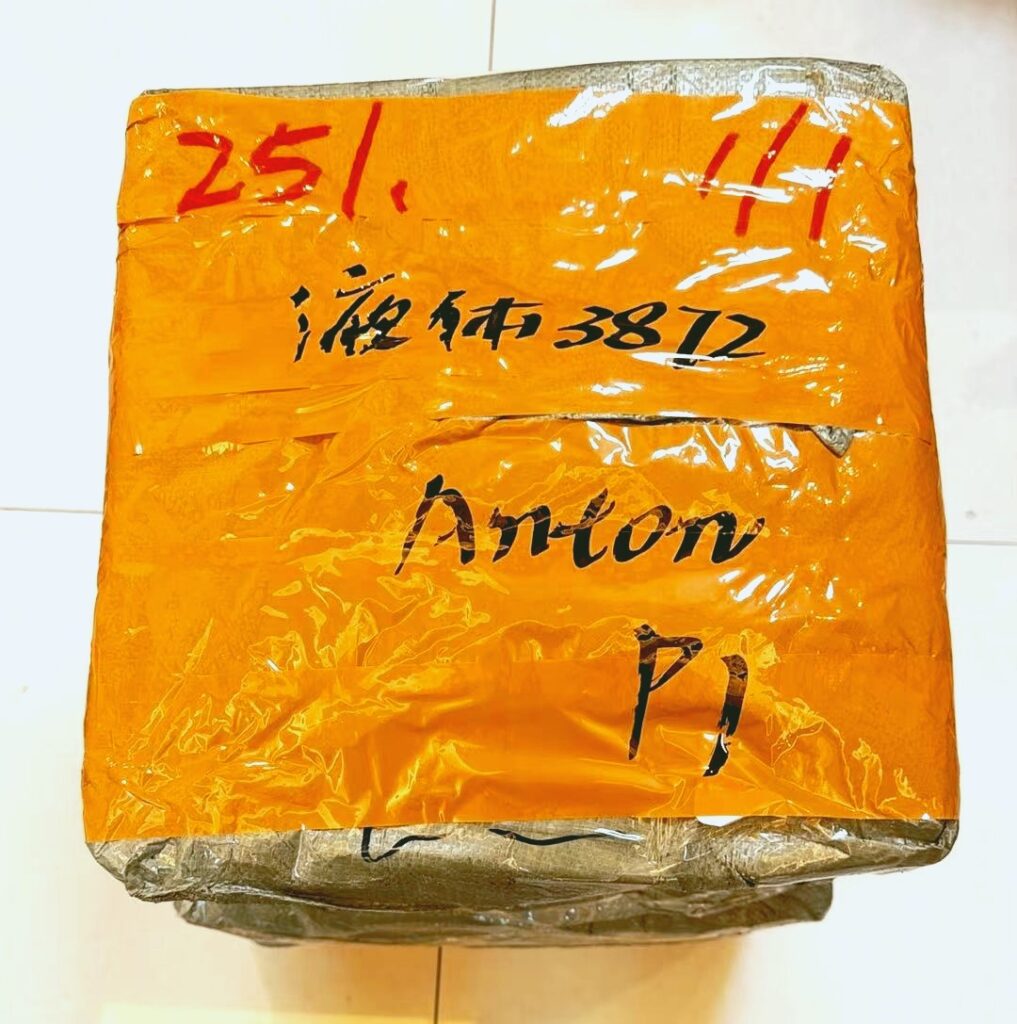 25/. 1/1
液体3872
Anton
P1